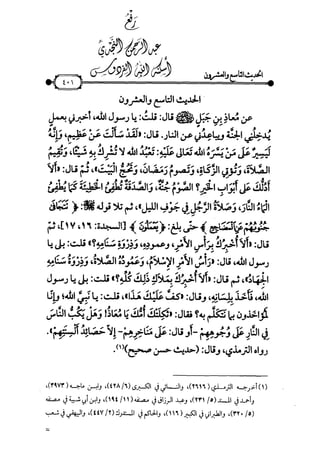 رفع
عبد الرحمن النجدي
أسكنه الله الفردوس
الحديث التاسع والعشرون
٤٠١
الحديث التاسع والعشرون
عن مُعاذِ بنِ جَبَلٍ قال: قلتُ: يا رسول الله، أخبرني بعملٍ
يُدخِلُني الجنَّة ويباعدُني عن النار. قال: «لَقَدْ سَأَلْتَ عَنْ عَظِيمٍ، وَإِنَّهُ
لَيَسِيرٌ عَلَى مَنْ يَسَّرَهُ اللهُ تَعَالَى عَلَيْهِ: تَعْبُدُ اللهَ لَا تُشْرِكُ بِهِ شَيْئًا، وَتُقِيمُ
الصَّلَاةَ، وَتُؤتِي الزَّكَاةَ، وَتَصُومُ رَمَضَانَ، وَتَحُجُّ الْبَيْتَ»، ثُمَّ قال: «أَلَا
أَدُلُّكَ عَلَى أَبْوَابِ الْخَيْرِ؟ الصَّوْمُ جُنَّةٌ، وَالصَّدَقَةُ تُطْفِئُ الْخَطِيئَةَ كَمَا يُطْفِئُ
الْمَاءُ النَّارَ، وَصَلَاةُ الرَّجُلِ فِي جَوْفِ اللَّيلِ»، ثم تلا قوله ﴿تَتَجَافَى
جُنُوبُهُمْ عَنِ الْمَضَاجِعِ﴾ حتى بلغ: ﴿يَعْمَلُونَ﴾ [السجدة: ١٦، ١٧]، ثم
قال: «أَلَا أُخْبِرُكَ بِرَأْسِ الْأَمْرِ، وعمودِهِ، وَذِرْوَةِ سَنَامِهِ؟» قلت: بلى يا
رسول الله، قال: «رَأْسُ الْأَمْرِ الْإِسْلَامُ، وَعَمُودُهُ الصَّلَاةُ، وَذِرْوَةُ سَنَامِهِ
الجِهادُ»، ثم قال: «أَلَا أُخْبِرُكَ بِمَلَاكِ ذَلِكَ كُلِّهِ؟» قلت: بلى يا رسول
الله، فَأَخَذَ بِلِسَانِهِ، وقال: «كُفَّ عَلَيْكَ هَذَا»، قلت: يا نَبِيَّ الله، وإنا
لمؤاخذون بما نتكلَّم به؟ فقال: «ثَكِلَتْكَ أُمُّكَ يَا مُعَاذُ! وَهَلْ يَكُبُّ النَّاسَ
فِي النَّارِ عَلَى وُجُوهِهِمْ -أو قال: عَلَى مَنَاخِرِهِمْ- إِلَّا حَصَائِدُ أَلْسِنَتِهِمْ».
رواه الترمذي، وقال: (حديث حسن صحيح)(١).
(١) أخرجه الترمذي (٢٦١٦)، والنسائي في الكبرى (٤٢٨/٦)، وابن ماجه (٣٩٧٣)،
وأحمد في المسند (٢٣١/٥)، وعبد الرزاق في مصنفه (١٩٤/١١)، وابن أبي شيبة في مصنفه
(٣٢٠/٥)، والطبراني في الكبير (١١٦)، والحاكم في المستدرك (٤٤٧/٢)، والبيهقي في شعب